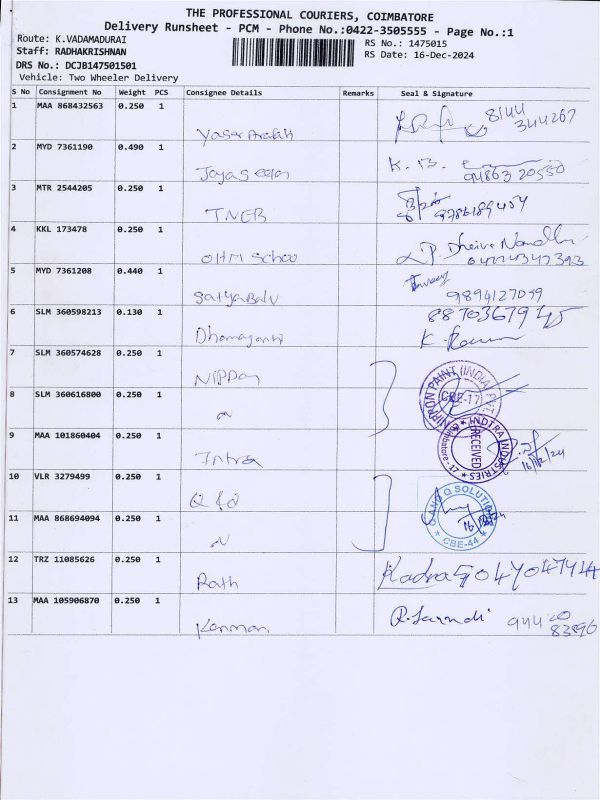 THE PROFESSIONAL COURIERS, COIMBATORE
Delivery Runsheet - PCM - Phone No.:0422-3505555 - Page No.:1
Route: K.VADAMADURAI
RS No.: 1475015
Staff: RADHAKRISHNAN
RS Date: 16-Dec-2024
DRS No.: DCJB147501501
Vehicle: Two Wheeler Delivery
S No Consignment No Weight PCS Consignee Details Remarks Seal & Signature
1 MAA 868432563 0.250 1
8144
344267
Yasar Arafath
2 MYD 7361190 0.490 1
K. B.
94863 20550
Jayaseelan
3 MTR 2544205 0.250 1
9786189454
TNEB
4 KKL 173478 0.250 1
P. Dheiva Nandhi
04224347393
OHM School
5 MYD 7361208 0.440 1
9894127099
Satya Balu
6 SLM 360598213 0.130 1
8870367945
Dhamayanthi
7 SLM 360574628 0.250 1
NIPPON PAINT (INDIA) PVT.
CBE-17
NIPPON
8 SLM 360616800 0.250 1
INDTRA INDUSTRIES
RECEIVED
Coimbatore-17
9 MAA 101860404 0.250 1
16/12/24
Intra
10 VLR 3279499 0.250 1
Q AND Q SOLUTIONS
CBE-44
Q &Q
11 MAA 868694094 0.250 1
12 TRZ 11085626 0.250 1
Rath
13 MAA 105906870 0.250 1
94420
83896
Kanman